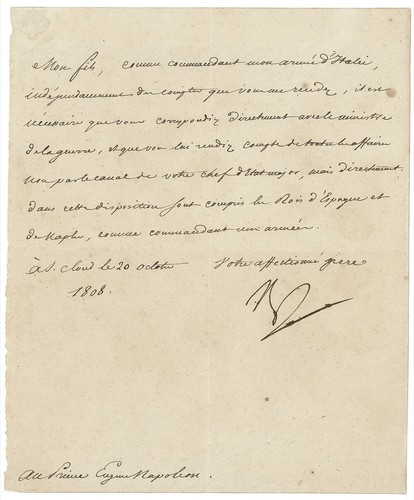 Mon fils, comme commandant mon armée d'Italie,
indépendamment des comptes que vous me rendez, il est
nécessaire que vous correspondiez directement avec le ministre
de la guerre, et que vous lui rendiez compte de toutes les affaires
non par le canal de votre chef d'Etat major, mais directement.
dans cette disposition sont compris les Rois d'Espagne et
de Naples, comme commandant mes armées.
à S. Cloud le 20 octobre
Votre affectionné père
1808.
Au Prince Eugène Napoléon.